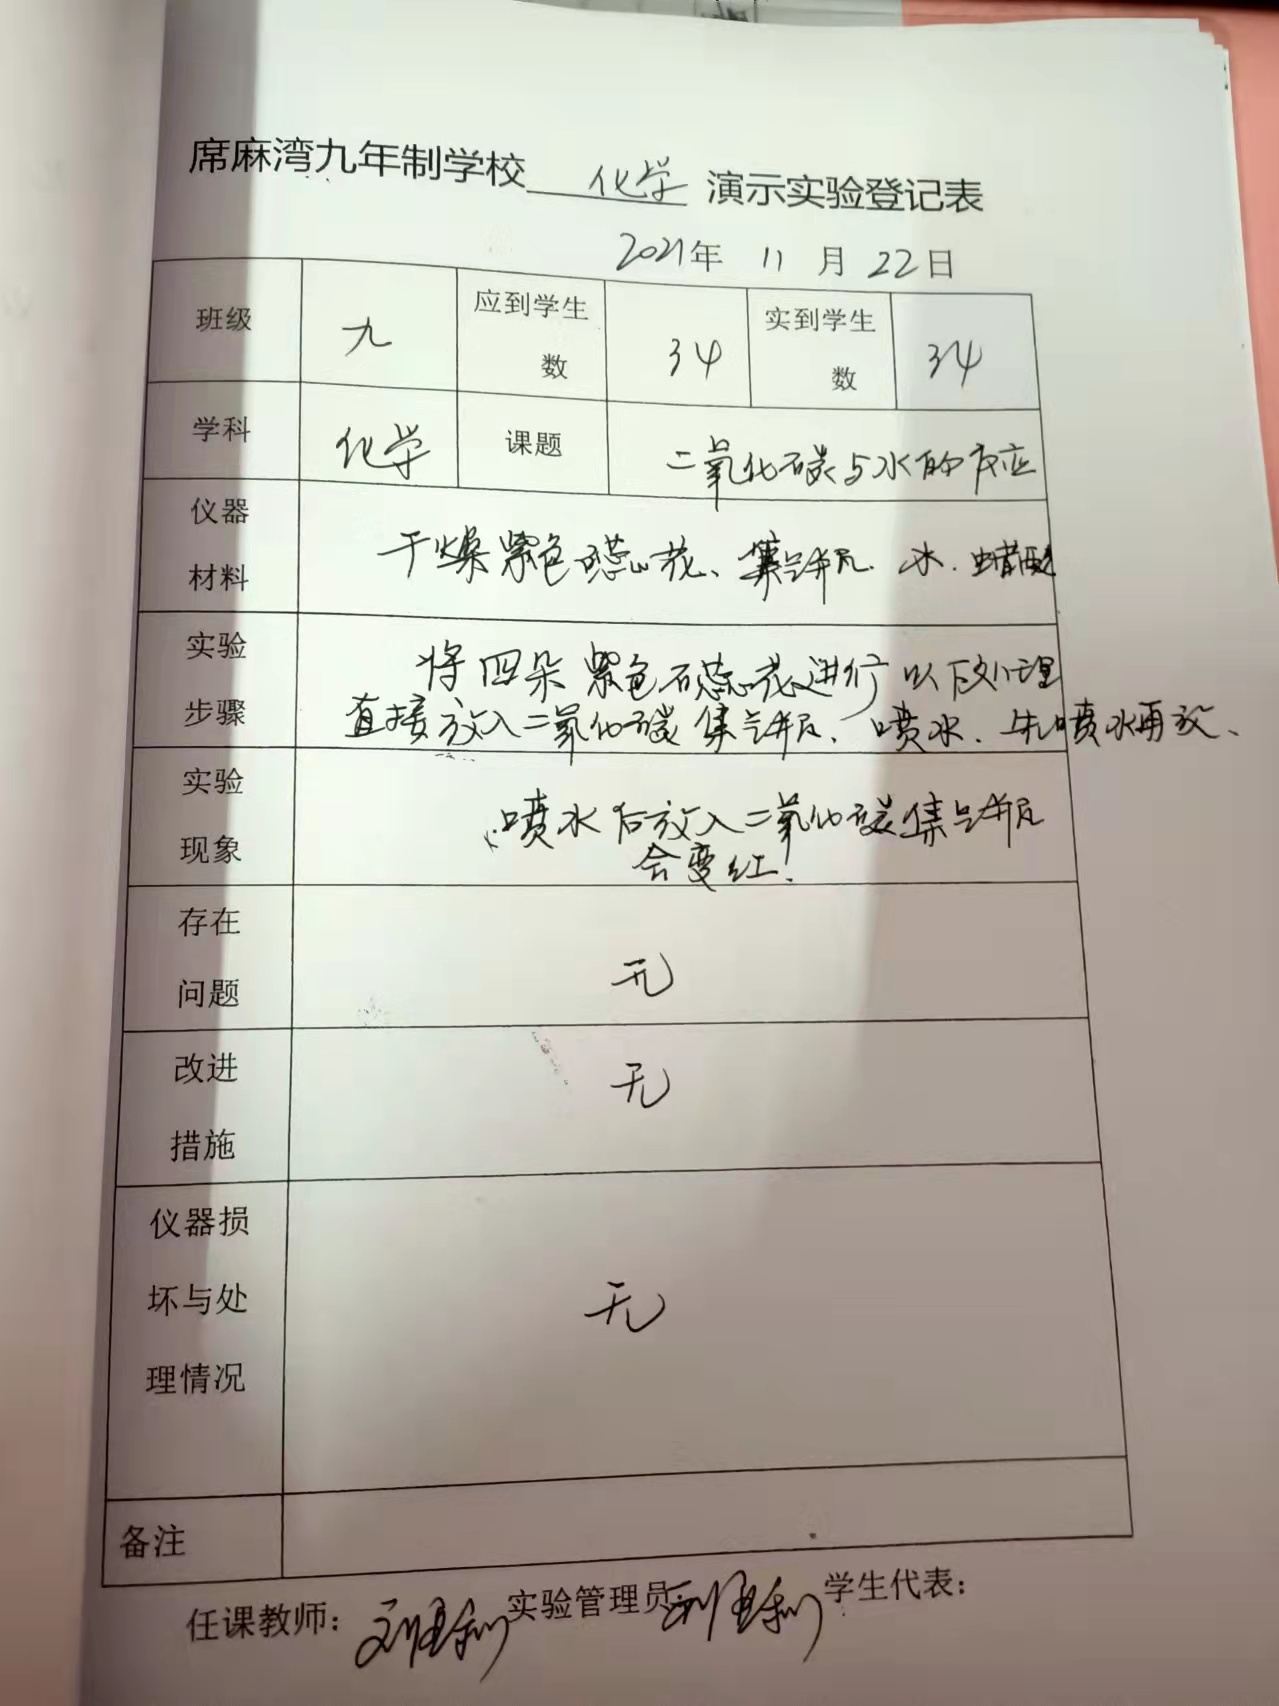 席麻湾九年制学校 化学 演示实验登记表
2021年 11 月 22日
班级 九 应到学生数 34 实到学生数 34
学科 化学 课题 二氧化碳与水的反应
仪器材料 干燥紫色石蕊花、集气瓶、水、蜡醋
实验步骤 将四朵紫色石蕊花进行以下处理
直接放入二氧化碳集气瓶、喷水、先喷水再放、
实验现象 喷水后放入二氧化碳集气瓶
会变红!
存在问题 无
改进措施 无
仪器损坏与处理情况 无
备注
任课教师: 实验管理员 学生代表: